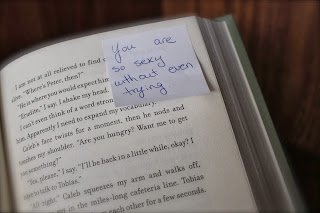 You are
so sexy
without even
trying
I am not at all relieved to find
"Where's Peter, then?"
"He is where you would expect him
"Erudite," I say. I shake my head.
I can't even think of a word strong
him. Apparently I need to expand my vocabulary.
Caleb's face twists for a moment, then he nods and
touches my shoulder. "Are you hungry? Want me to get
you something?"
"Yes, please," I say. "I'll be back in a little while, okay? I
to talk to Tobias."
"All right." Caleb squeezes my arm and walks off,
in the miles-long cafeteria line. Tobias
each other for a few seconds.